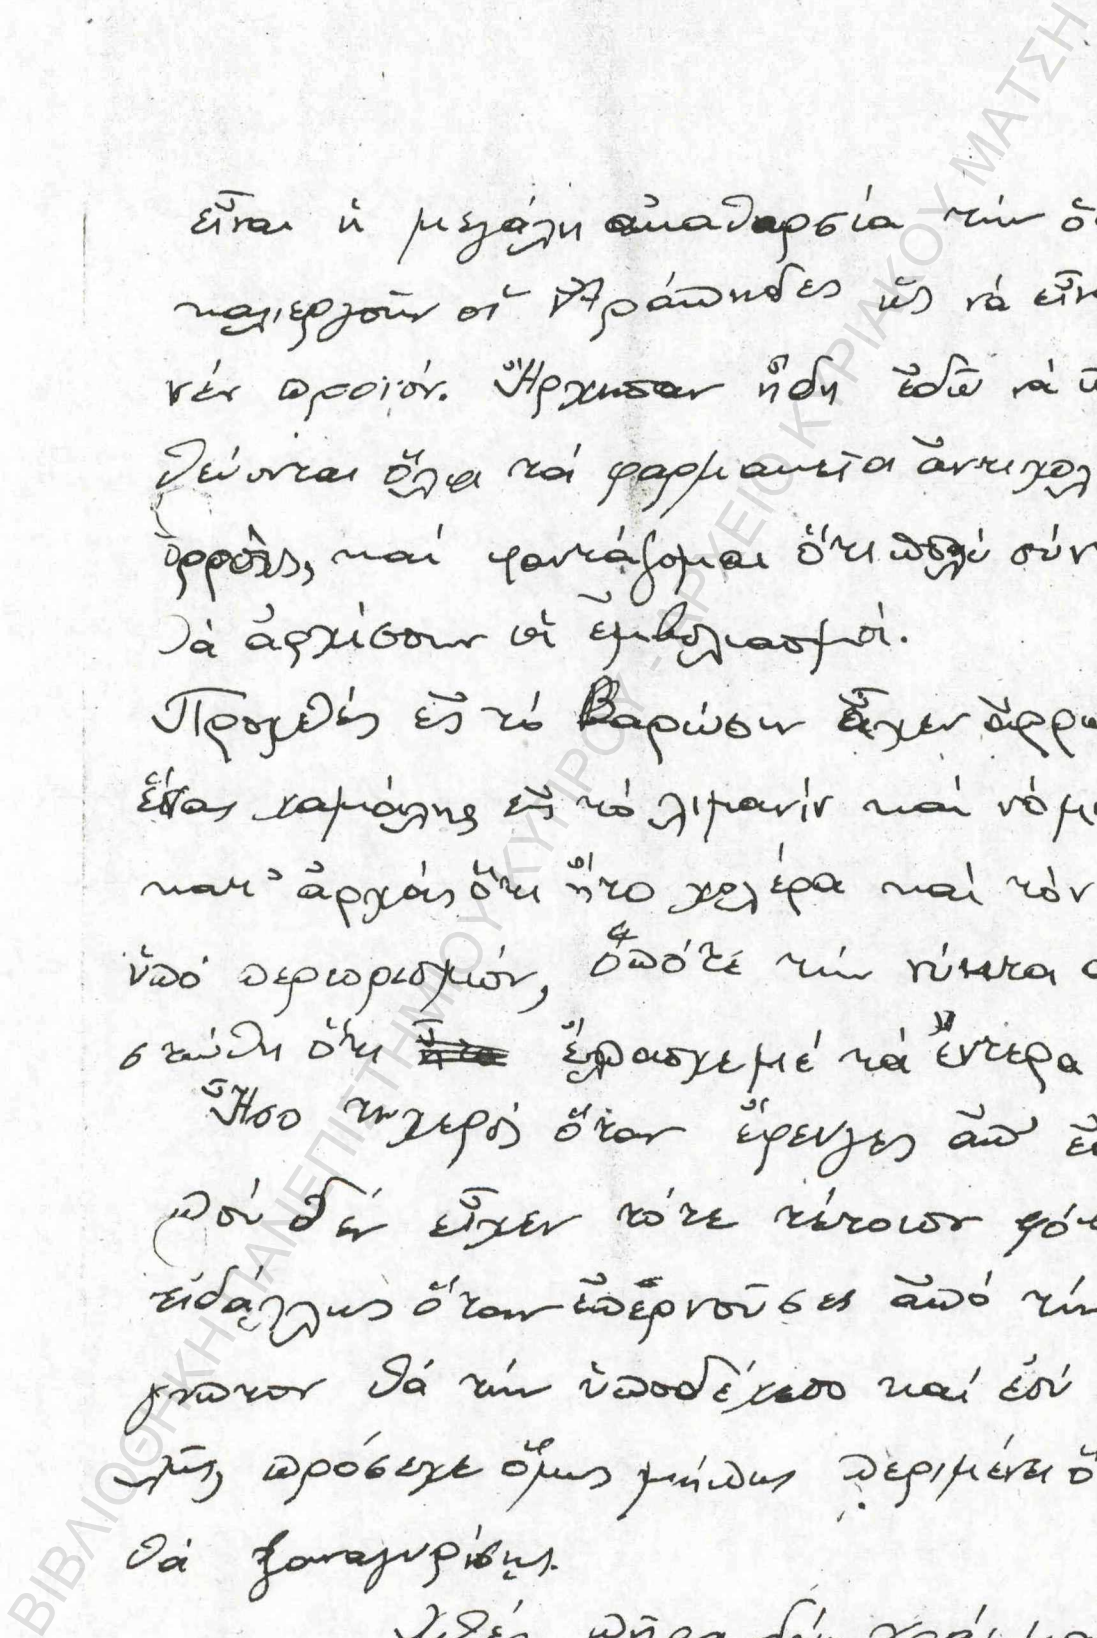 εἶναι ἡ μεγάλη ἀκαθαρσία τήν ὅ
καλιεργοῦν οἱ Ἀράπηδες ὥς νά εἶν
νέν προϊόν. Ἤρχησαν ἤδη ἐδῶ νά
θεύονται ὅλα τά φαρμακεῖα ἀντιχολ
ὀρρούς, καί φαντάζομαι ὅτι πολύ σύν
θά ἀρχίσουν οἱ ἐμβολιασμοί.
Προχθές εἰς τό Βαρώσιν εἶχεν ἄρρω
ἕνας χαμάλης εἰς τό λιμανίν καί νόμι
κατ' ἀρχάς ὅτι ἦτο χολέρα καί τόν
ὑπό περιορισμόν, ὁπότε τήν νύκτα
στώθη ὅτι ἔπασχε μέ τά ἔντερα
Ἦσο τυχερός ὅταν ἔφευγες ἀπ' ἐ
πού δέν εἶχεν τότε τέτοιον φό
εἰδάλλως ὅταν ἐπερνοῦσες ἀπό τήν
γυπτον θά τήν ὑποδέχεσο καί ἐσύ
πρόσεχε ὅμως μήπως περιμένει ὅ
θά ξαναγυρίσης.
Χθές πῆρα δέν
ΒΙΒΛΙΟΘΗΚΗ ΠΑΝΕΠΙΣΤΗΜΙΟΥ ΚΥΠΡΟΥ - ΑΡΧΕΙΟ ΚΥΡΙΑΚΟΥ ΜΑΤΣΗ